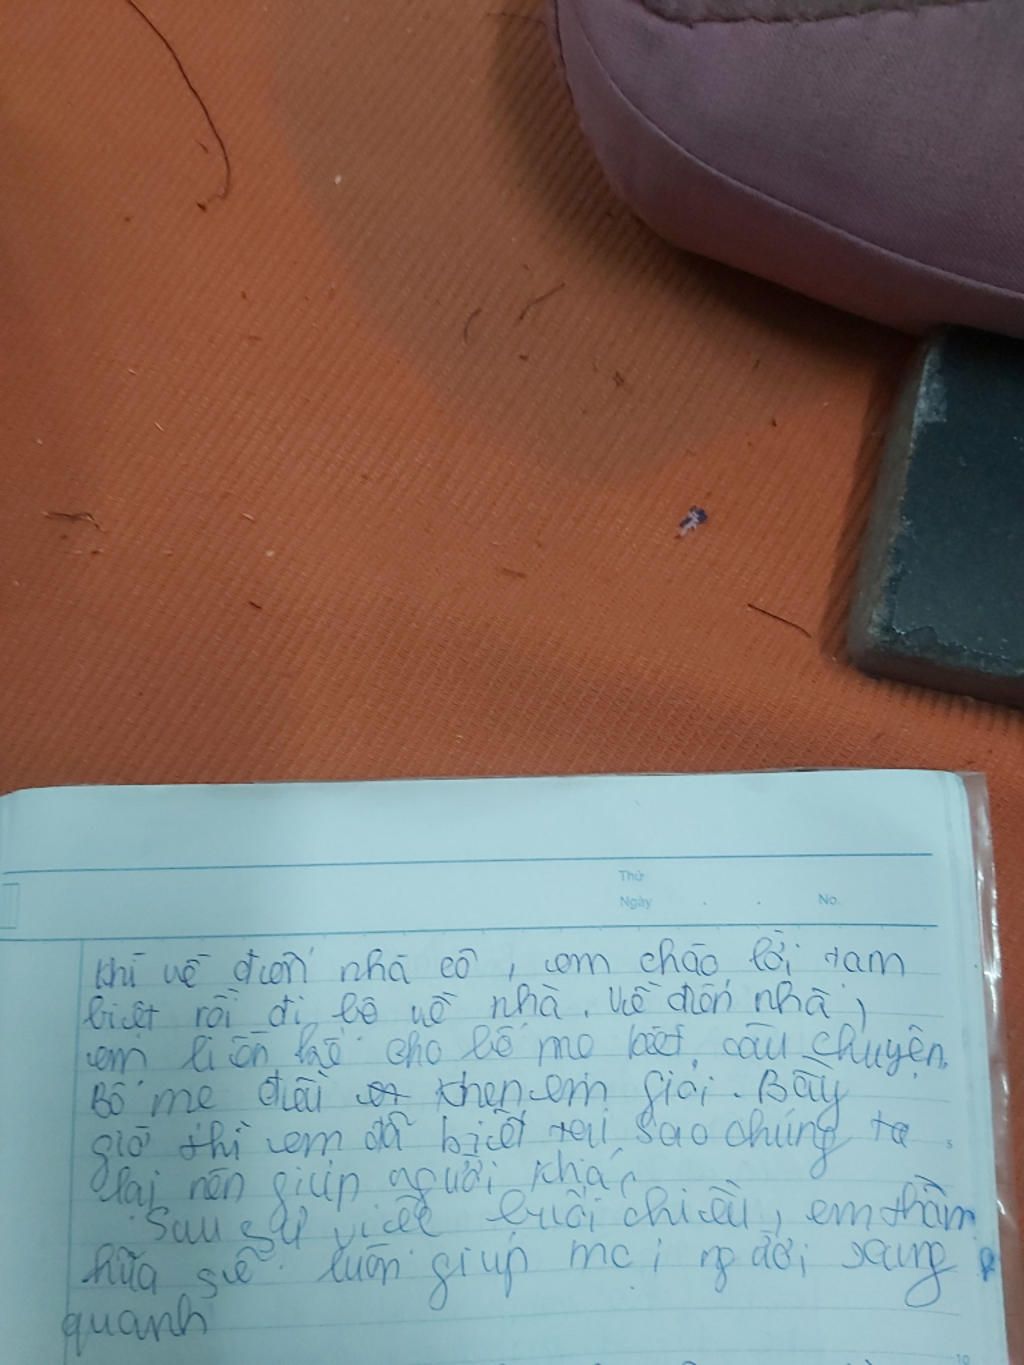 Thứ
Ngày . . No.
khi về đến nhà cô, em chào lời tạm
biệt rồi đi bộ về nhà. Về đến nhà,
em liền kể cho bố mẹ biết câu chuyện.
Bố mẹ đều khen em giỏi. Bây
giờ thì em đã biết tại sao chúng ta
lại nên giúp người khác
Sau sự việc buổi chiều, em thầm
hứa sẽ luôn giúp mọi người xung
quanh